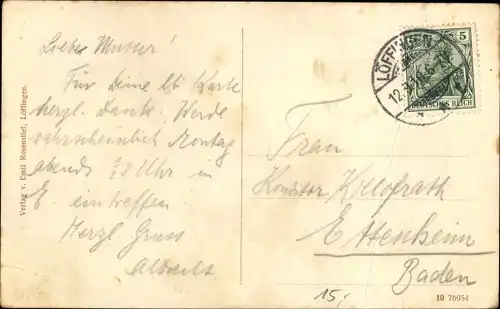 Liebe Mutter!
Für Deine lb Karte
herzl. Dank. Werde
wahrscheinlich Montag
abends ½8 Uhr in
E. eintreffen
Herzl. Gruss
Albrecht
Verlag v. Emil Rosenstiel, Löffingen.
5
DEUTSCHES REICH
LÖFFINGEN
Frau
Ettenheim
Baden
15,
10 76954